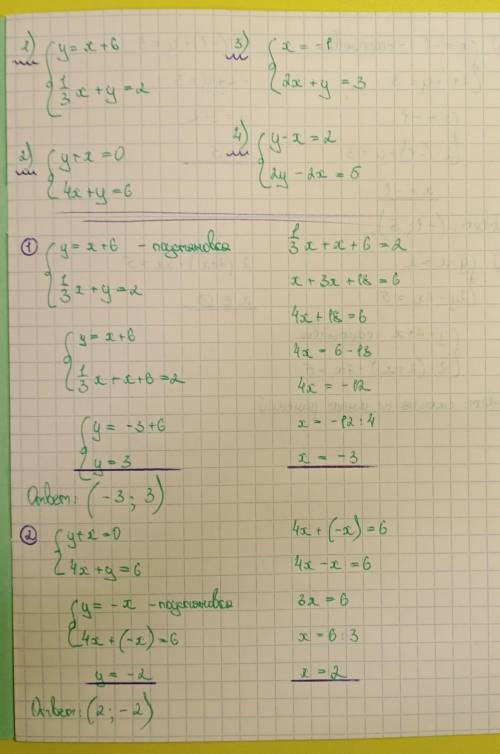 1) { y = x + 6
1/3 x + y = 2
3) { x = -1
2x + y = 3
2) { y + x = 0
4x + y = 6
4) { y - x = 2
2y - 2x = 5
① { y = x + 6 - подстановка
1/3 x + y = 2
{ y = x + 6
1/3 x + x + 6 = 2
{ y = -3 + 6
y = 3
1/3 x + x + 6 = 2
x + 3x + 18 = 6
4x + 18 = 6
4x = 6 - 18
4x = -12
x = -12 : 4
x = -3
Ответ: (-3; 3)
② { y + x = 0
4x + y = 6
{ y = -x - подстановка
4x + (-x) = 6
y = -2
4x + (-x) = 6
4x - x = 6
3x = 6
x = 6 : 3
x = 2
Ответ: (2; -2)